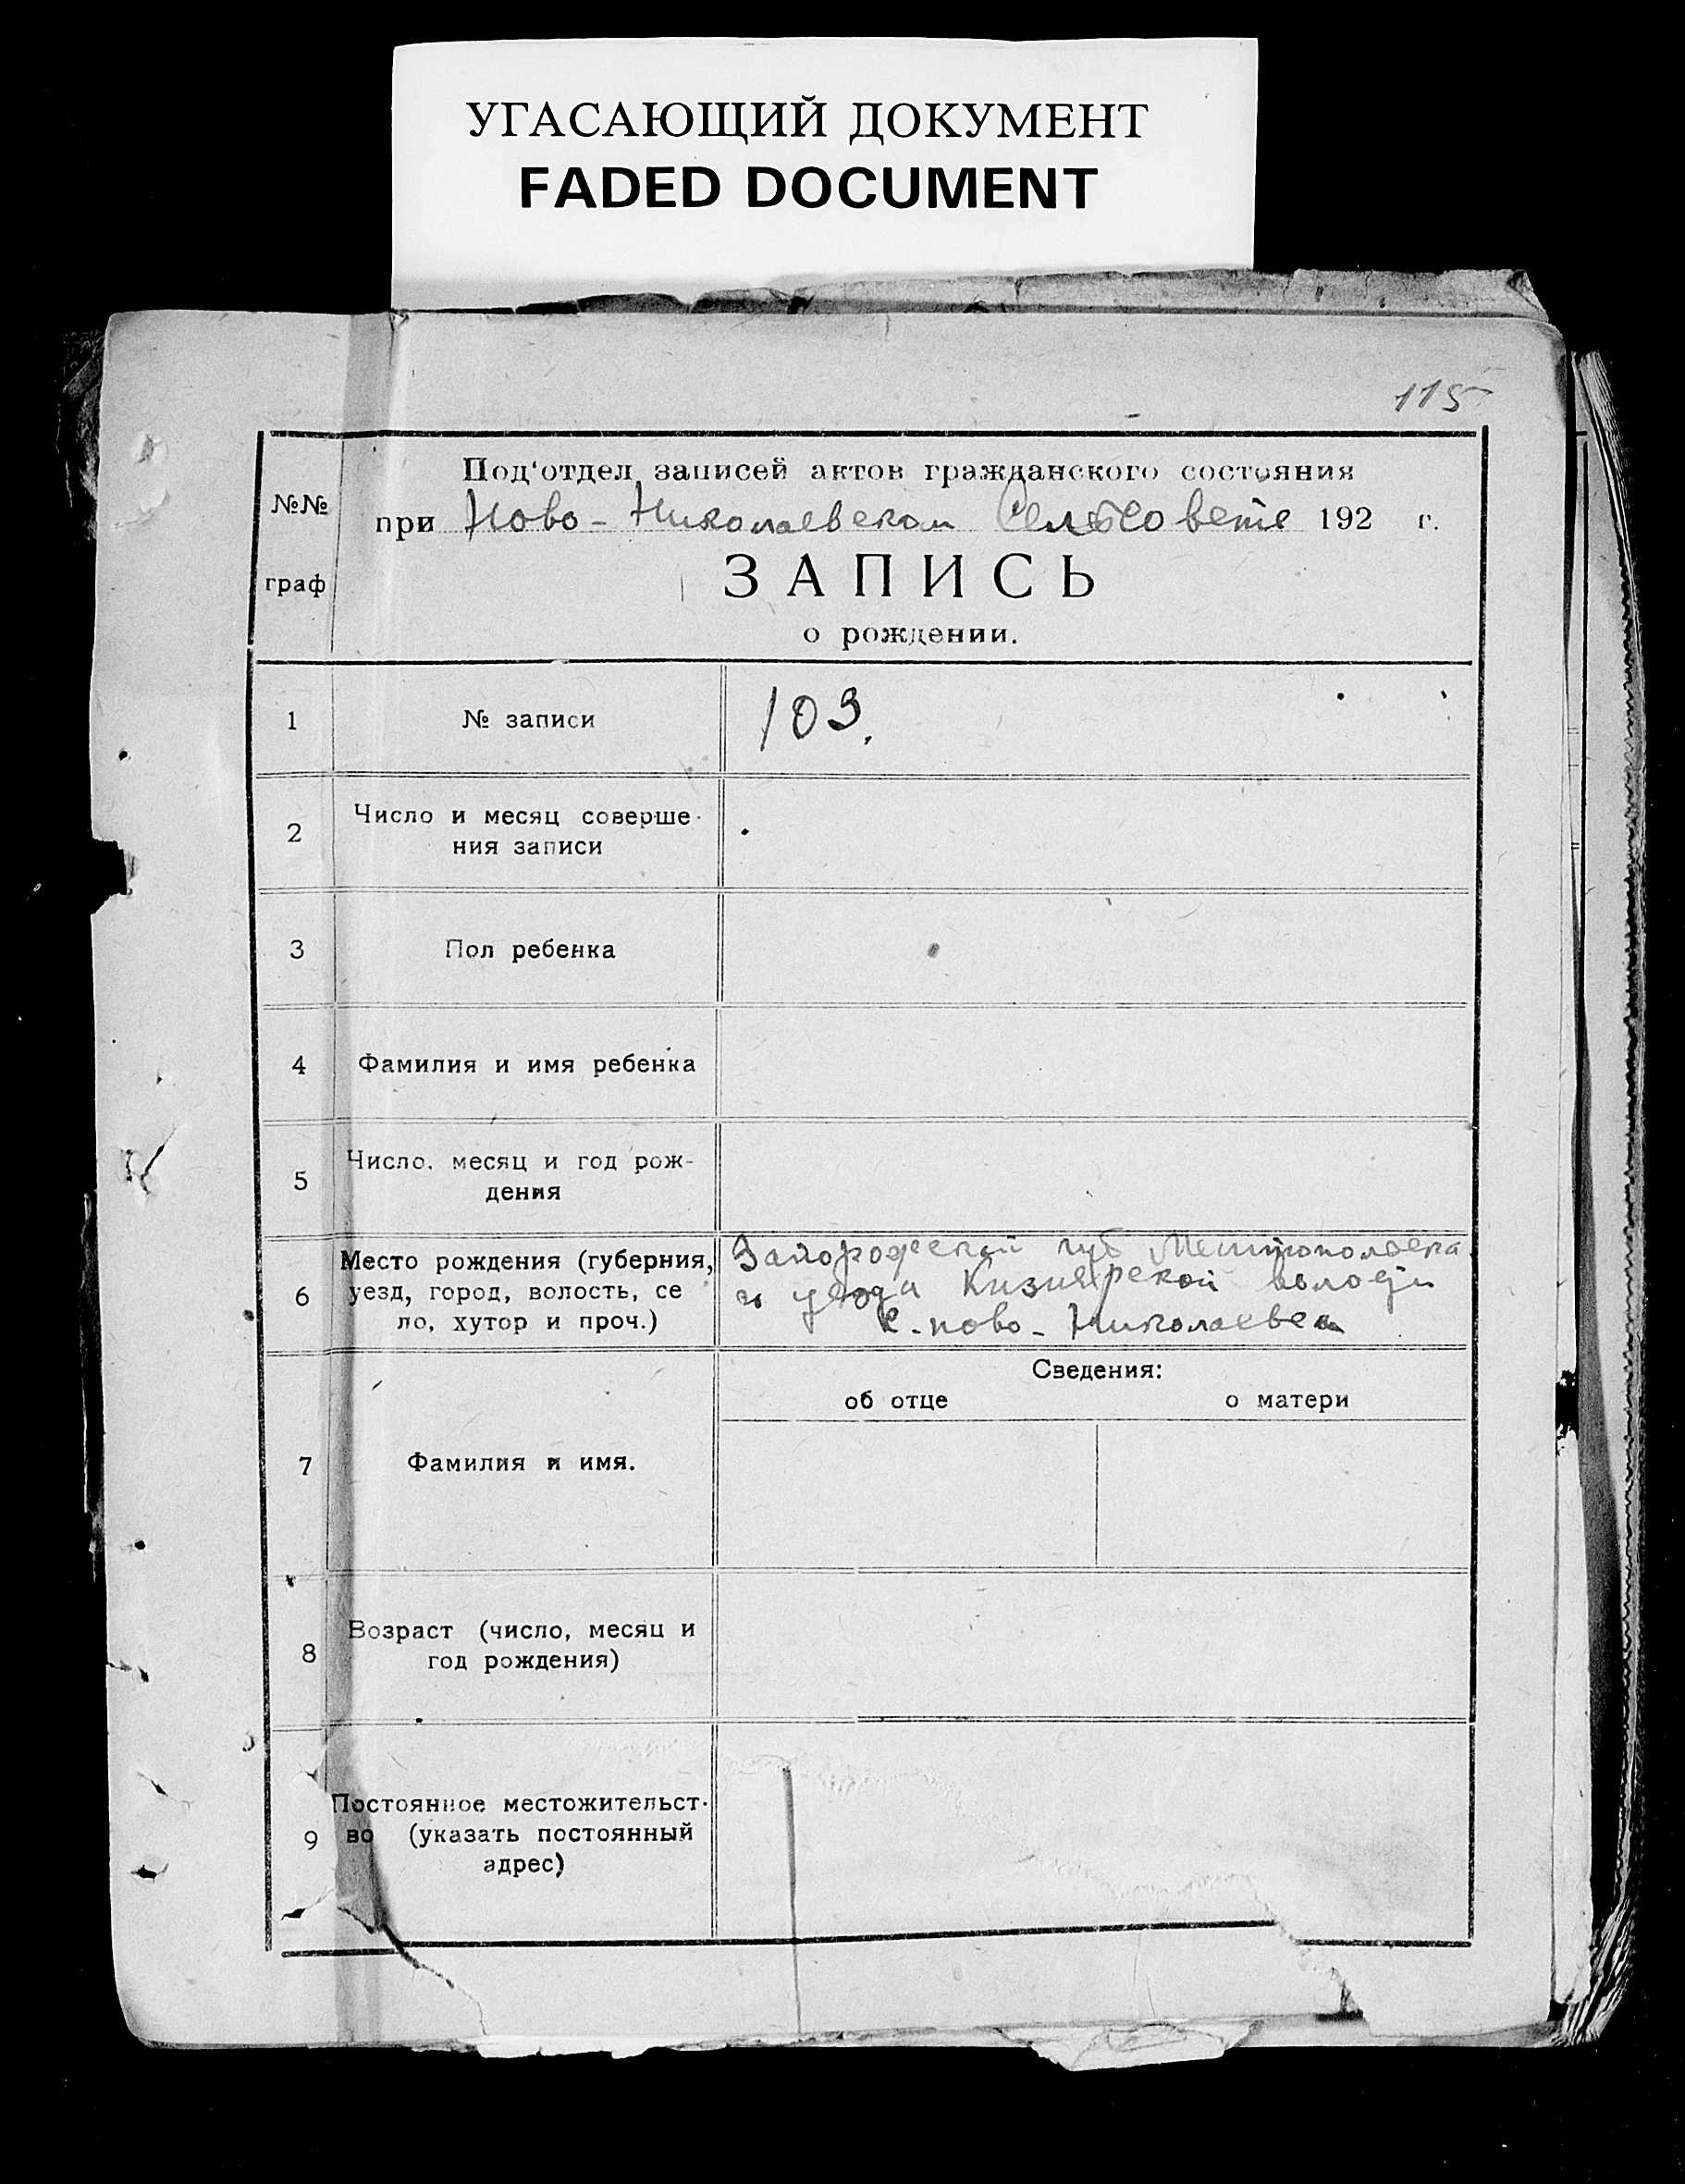 УГАСАЮЩИЙ ДОКУМЕНТ
FADED DOCUMENT
115
Под‘отдел записей актов гражданского состояния
№№ при Ново-Николаевском Сельсовете 192 г.
граф ЗАПИСЬ
о рождении.
1 № записи 103.
2 Число и месяц соверше-
ния записи
3 Пол ребенка
4 Фамилия и имя ребенка
5 Число, месяц и год рож-
дения
6 Место рождения (губерния,
уезд, город, волость, се
ло, хутор и проч.)
губ Мелитопольска
го уезда Кизиярской
с. ново-Николаевка
Сведения:
об отце о матери
7 Фамилия и имя.
8 Возраст (число, месяц и
год рождения)
9 Постоянное местожительст-
во (указать постоянный
адрес)